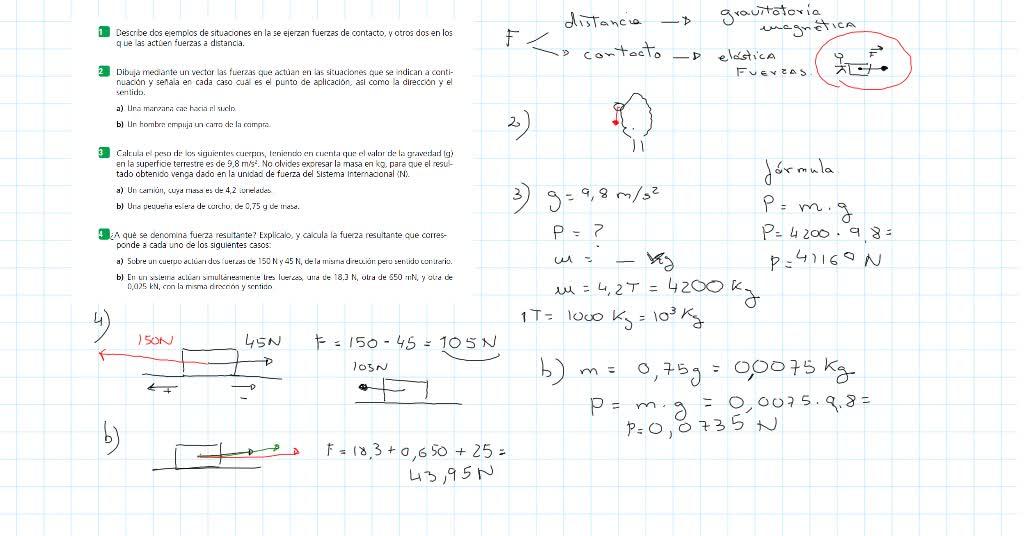 1 Describe dos ejemplos de situaciones en la se ejerzan fuerzas de contacto, y otros dos en los
que las actúen fuerzas a distancia.
2 Dibuja mediante un vector las fuerzas que actúan en las situaciones que se indican a conti-
nuación y señala en cada caso cuál es el punto de aplicación, así como la dirección y el
sentido.
a) Una manzana cae hacia el suelo.
b) Un hombre empuja un carro de la compra.
3 Calcula el peso de los siguientes cuerpos, teniendo en cuenta que el valor de la gravedad (g)
en la superficie terrestre es de 9,8 m/s². No olvides expresar la masa en kg, para que el resul-
tado obtenido venga dado en la unidad de fuerza del Sistema Internacional (N).
a) Un camión, cuya masa es de 4,2 toneladas.
b) Una pequeña esfera de corcho, de 0,75 g de masa.
4 ¿A qué se denomina fuerza resultante? Explícalo, y calcula la fuerza resultante que corres-
ponde a cada uno de los siguientes casos:
a) Sobre un cuerpo actúan dos fuerzas de 150 N y 45 N, de la misma dirección pero sentido contrario.
b) En un sistema actúan simultáneamente tres fuerzas, una de 18,3 N, otra de 650 mN, y otra de
0,025 kN, con la misma dirección y sentido.
F
distancia → gravitatoria
magnética
contacto → elástica
Fuerzas.
F
2)
3) g = 9,8 m/s²
P = ?
m = — Kg
m = 4,2T = 4200 Kg
1T = 1000 Kg = 10³ Kg
fórmula
P = m.g
P = 4200 . 9,8 =
P = 41160 N
b) m = 0,75g = 0,0075 Kg
P = m.g = 0,0075.9,8 =
P = 0,0735 N
4)
150N 45N F = 150 - 45 = 105 N
+ -
105N
b)
F = 18,3 + 0,650 + 25 =
43,95N